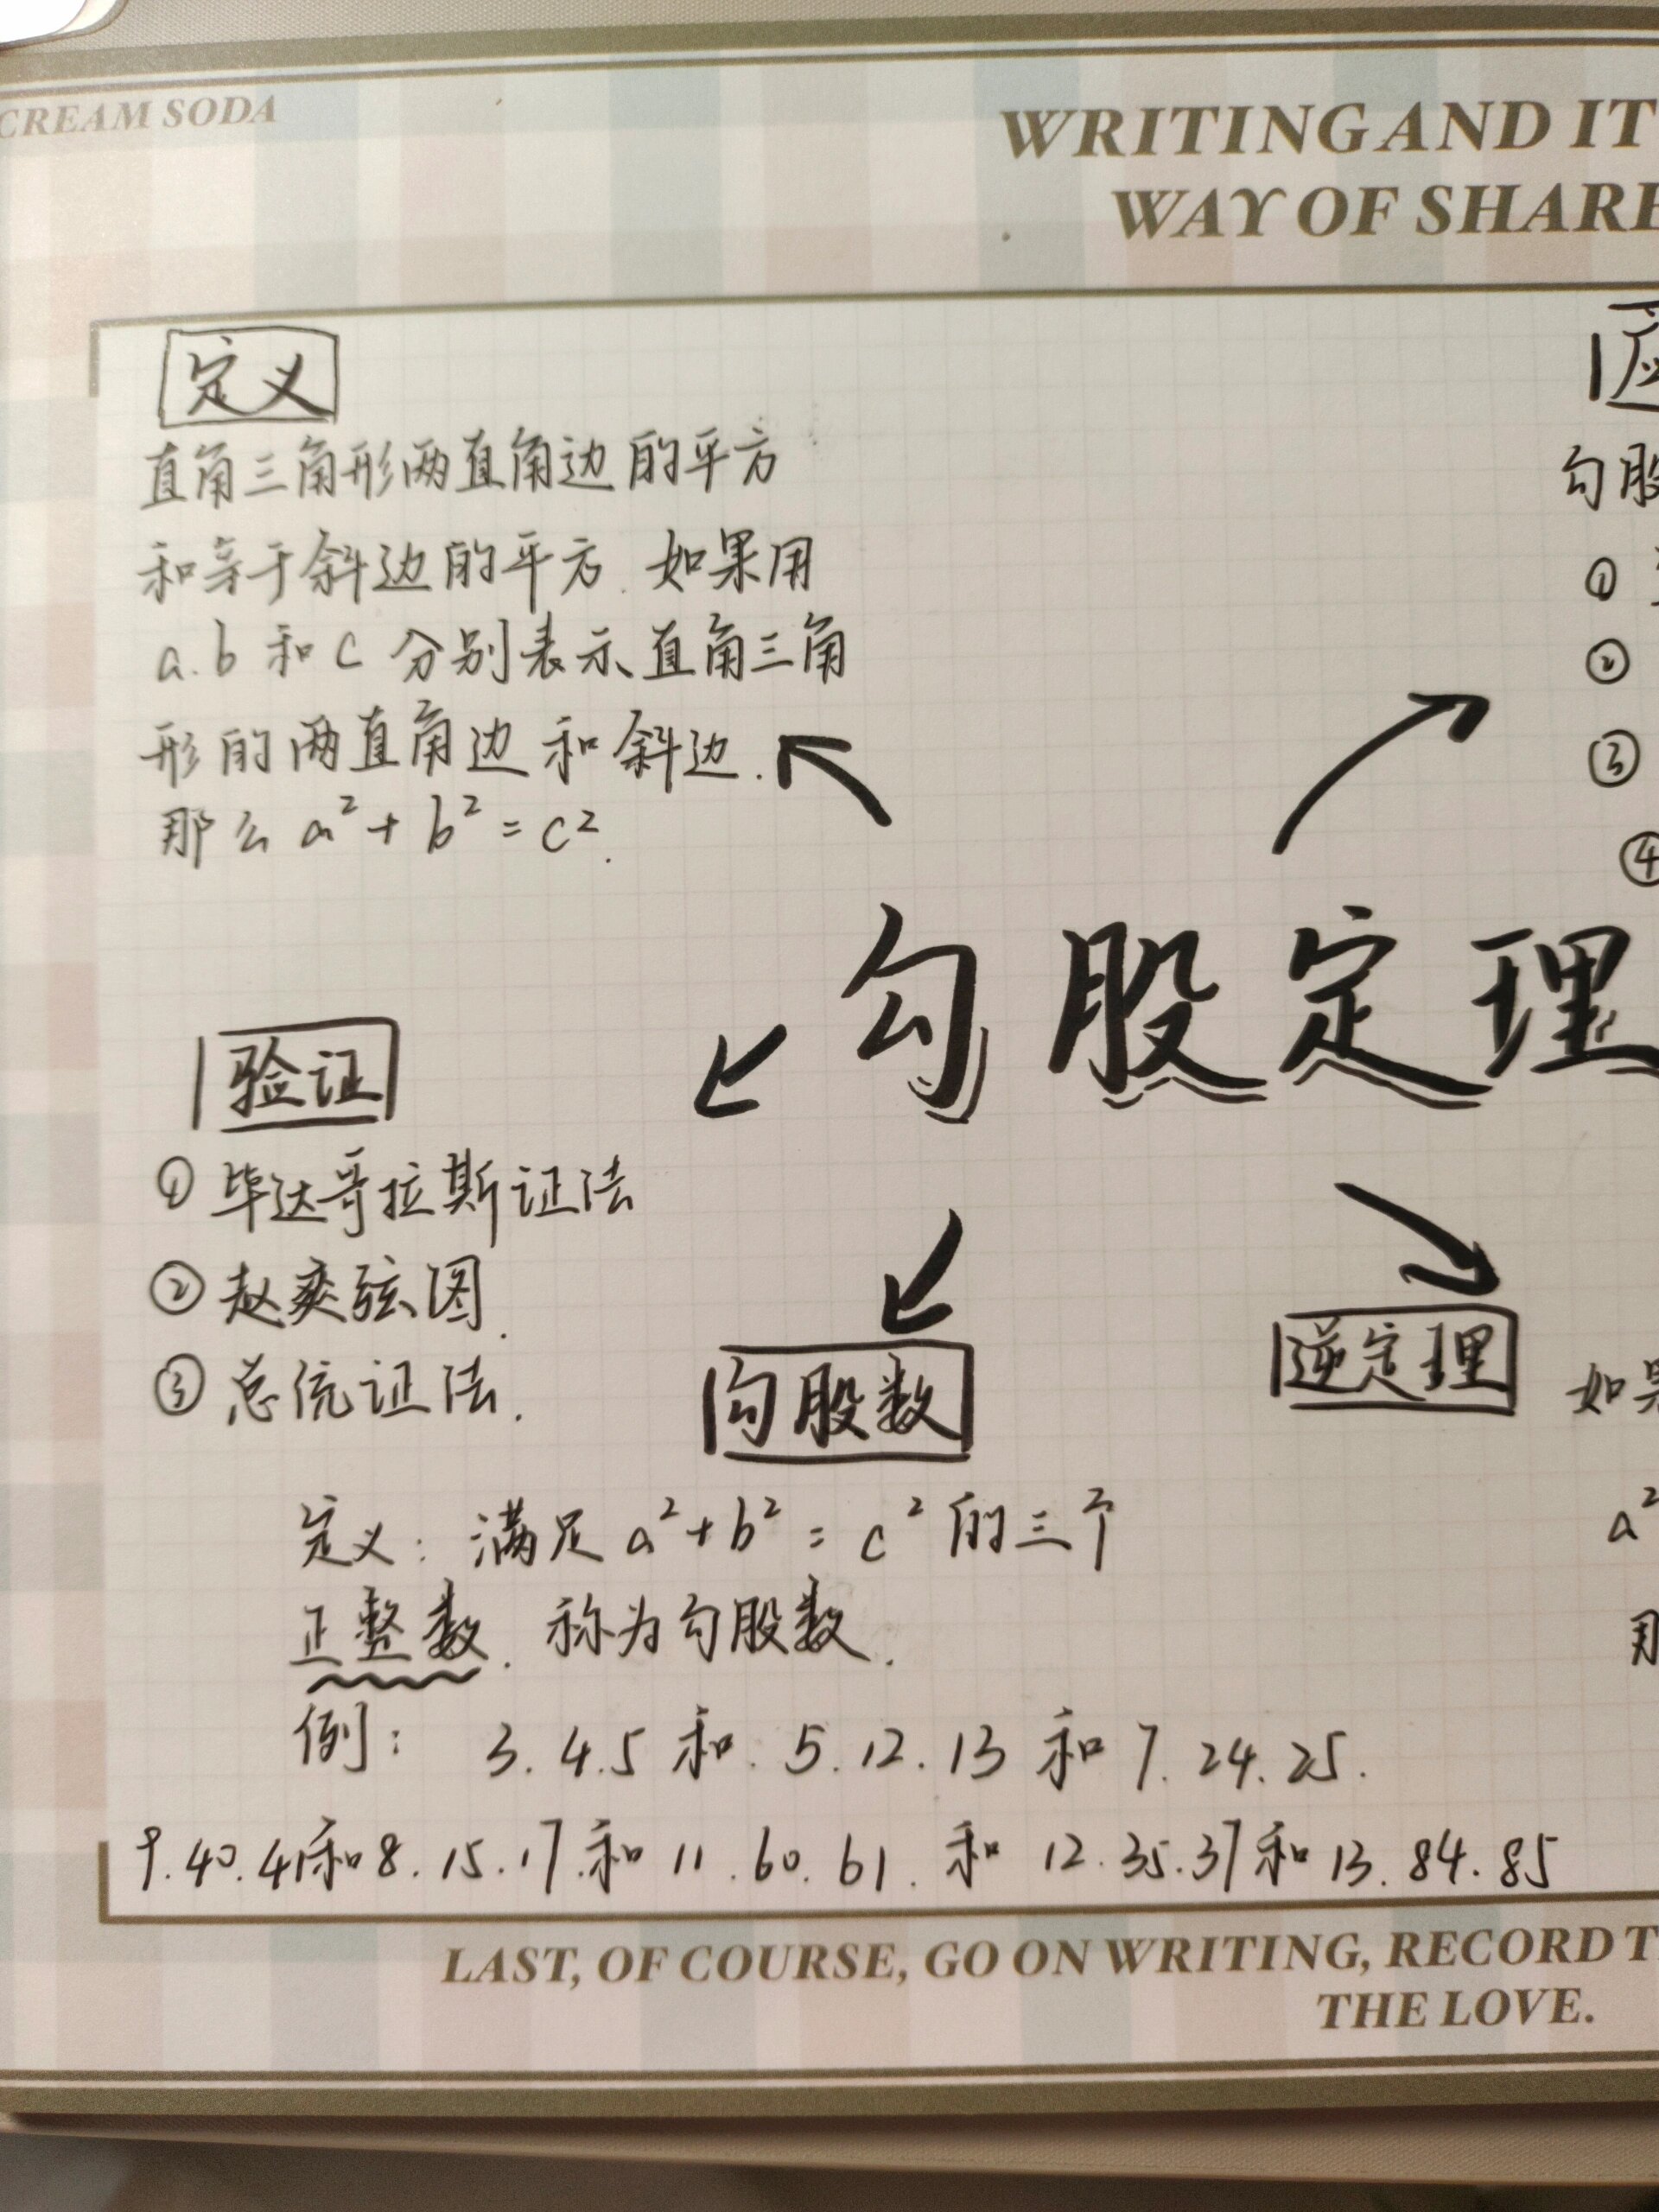 CREAM SODA
WRITING AND IT
WAY OF SHARE
定义
直角三角形两直角边的平方
和等于斜边的平方.如果用
a.b和c分别表示直角三角
形的两直角边和斜边.
那么a²+b²=c².
勾股
①
②
③
④
勾股定理
验证
①毕达哥拉斯证法
②赵爽弦图.
③总统证法.
勾股数
定义:满足a²+b²=c²的三个
正整数.称为勾股数.
例: 3.4.5和.5.12.13和7.24.25.
9.40.41和8.15.17.和11.60.61.和12.35.37和13.84.85
逆定理
如果
a²
LAST, OF COURSE, GO ON WRITING, RECORD T
THE LOVE.